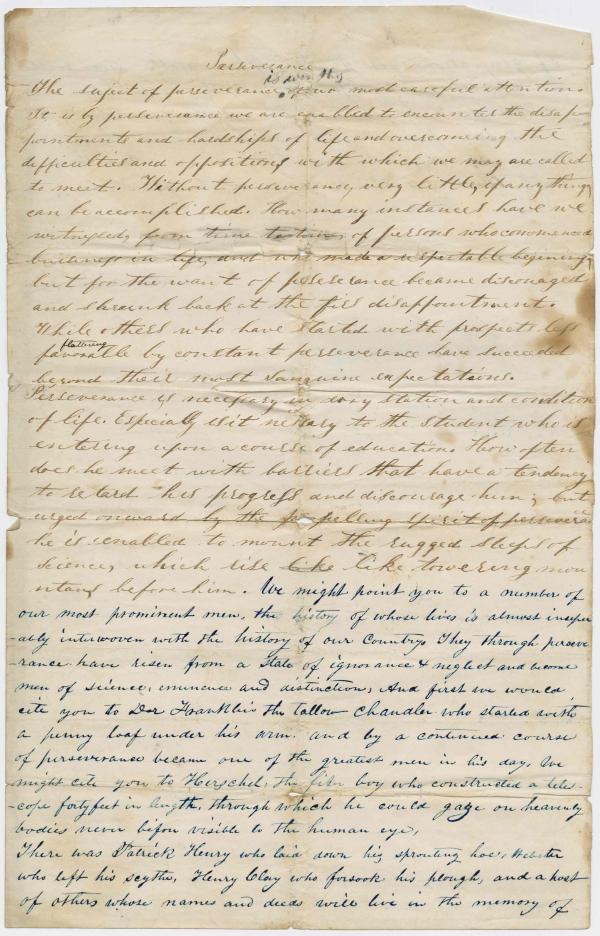 Perseverance
is worthy
The suject of perseverance, of our most careful attention.
It is by perseverance we are enabled to encounter the disap-
pointments and hardships of life and overcomeing the
difficulties and oppositions with which we may are called
to meet. Without perseverance, very little, if any thing
can be accomplished. How many instances have we
witnessed, from time to time, of persons who commenced
buisiness in life, and who made a respectable begining,
but for the want of perseverance became discouraged
and shrunk back at the firs disappointment.
While others who have started with prospects less
flattering
favorable by constant perseverance have succeeded
beyond their most sanguine expectations.
Perseverance is necessary in evry station and condition
of life. Especially is it nessary to the student who is
entering upon a course of education. How often
does he meet with barriers that have a tendency
to retard his progress and discourage him; but
urged onward by the propelling spirit of persevera
he is enabled to mount the rugged steeps of
science, which rise like like towering mou
ntans before him. We might point you to a number of
our most prominent men, the history of whose lives is almost insepe
-ably interwoven with the history of our Country. They through perseve
-rance have risen from a state of ignorance & neglect and become
men of science, eminence and distinction, And first we would,
cite you to Dr Franklin the tallow chandler who started with
a penny loaf under his arm, and by a continued course
of perseverance became one of the greatest men in his day. We
might cite you to Herschel, the fifer boy who constructed a teles-
-cope forty feet in length, through which he could gaze on heavenly
bodies never before visible to the human eye,
There was Patrick Henry who laid down his sprouting hoe, Webster
who left his scythe, Henry Clay who forsook his plough, and a host
of others whose names and deeds will live in the memory of